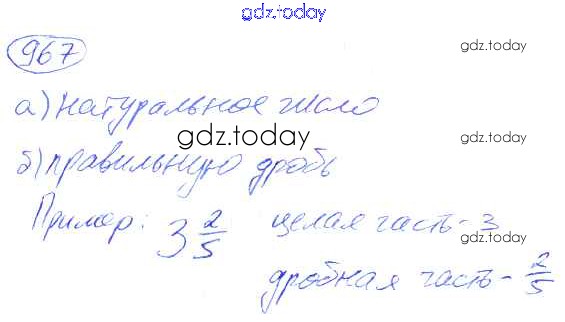 gdz.today
967
gdz.today
а) натуральное число
gdz.today
gdz.today
б) правильную дробь
Пример: 3 2/5 целая часть - 3
gdz.today
дробная часть - 2/5